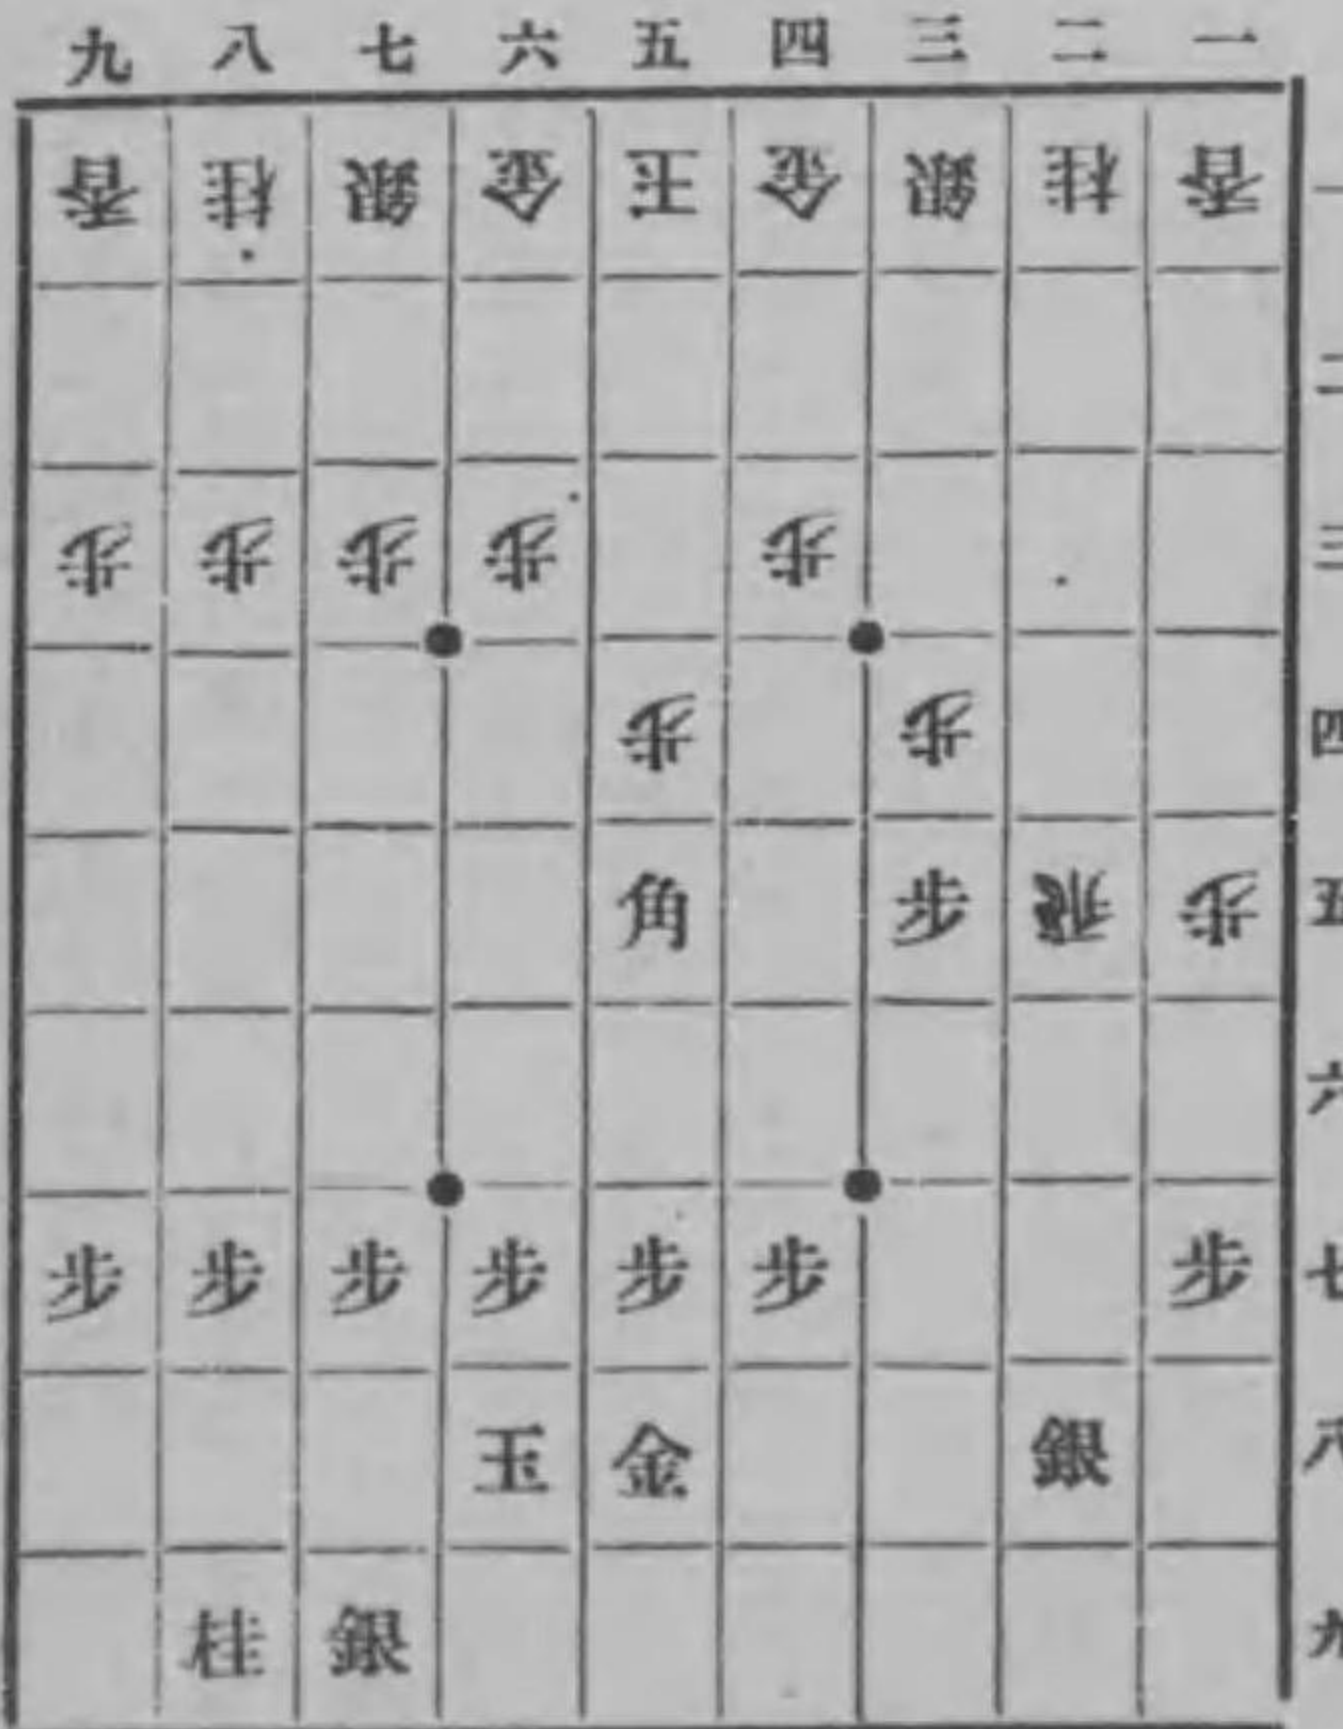 九 八 七 六 五 四 三 二 一
香 桂 銀 金 王 金 銀 桂 香 一
二
歩 歩 歩 歩 歩 三
歩 歩 四
角 歩 飛 歩 五
六
歩 歩 歩 歩 歩 歩 歩 七
玉 金 銀 八
桂 銀 九